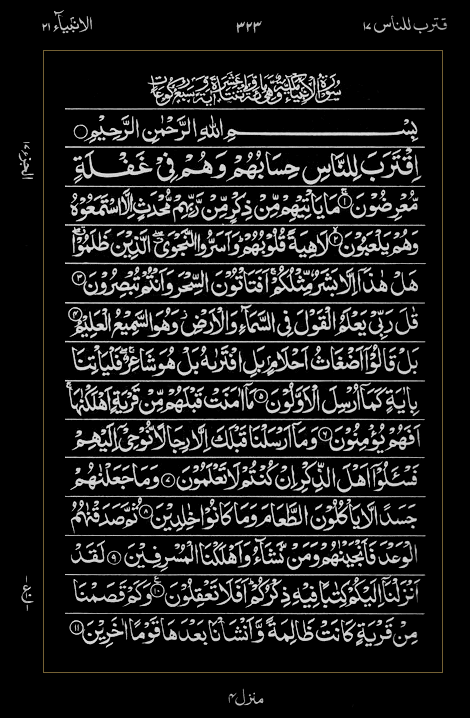 قترب للناس ١٧
٣٢٣
الانبيآء ٢١
بِسْمِ اللهِ الرَّحْمٰنِ الرَّحِيْمِ
اِقْتَرَبَ لِلنَّاسِ حِسَابُهُمْ وَهُمْ فِيْ غَفْلَةٍ
مُّعْرِضُوْنَ ۚ﴿١﴾ مَا يَاْتِيْهِمْ مِّنْ ذِكْرٍ مِّنْ رَّبِّهِمْ مُّحْدَثٍ اِلَّا اسْتَمَعُوْهُ
وَهُمْ يَلْعَبُوْنَ ﴿٢﴾ لَاهِيَةً قُلُوْبُهُمْ وَاَسَرُّوا النَّجْوَى الَّذِيْنَ ظَلَمُوْا
هَلْ هٰذَا اِلَّا بَشَرٌ مِّثْلُكُمْ اَفَتَاْتُوْنَ السِّحْرَ وَاَنْتُمْ تُبْصِرُوْنَ ﴿٣﴾
قٰلَ رَبِّيْ يَعْلَمُ الْقَوْلَ فِي السَّمَآءِ وَالْاَرْضِ وَهُوَ السَّمِيْعُ الْعَلِيْمُ ﴿٤﴾
بَلْ قَالُوْا اَضْغَاثُ اَحْلَامٍ بَلِ افْتَرٰىهُ بَلْ هُوَ شَاعِرٌ فَلْيَاْتِنَا
بِاٰيَةٍ كَمَا اُرْسِلَ الْاَوَّلُوْنَ ﴿٥﴾ مَا اٰمَنَتْ قَبْلَهُمْ مِّنْ قَرْيَةٍ اَهْلَكْنٰهَا
اَفَهُمْ يُؤْمِنُوْنَ ﴿٦﴾ وَمَا اَرْسَلْنَا قَبْلَكَ اِلَّا رِجَالًا نُّوْحِيْ اِلَيْهِمْ
فَسْـَٔلُوْا اَهْلَ الذِّكْرِ اِنْ كُنْتُمْ لَا تَعْلَمُوْنَ ﴿٧﴾ وَمَا جَعَلْنٰهُمْ
جَسَدًا لَّا يَاْكُلُوْنَ الطَّعَامَ وَمَا كَانُوْا خٰلِدِيْنَ ﴿٨﴾ ثُمَّ صَدَقْنٰهُمُ
الْوَعْدَ فَاَنْجَيْنٰهُمْ وَمَنْ نَّشَآءُ وَاَهْلَكْنَا الْمُسْرِفِيْنَ ﴿٩﴾ لَقَدْ
اَنْزَلْنَا اِلَيْكُمْ كِتٰبًا فِيْهِ ذِكْرُكُمْ اَفَلَا تَعْقِلُوْنَ ﴿١٠﴾ وَكَمْ قَصَمْنَا
مِنْ قَرْيَةٍ كَانَتْ ظَالِمَةً وَّاَنْشَاْنَا بَعْدَهَا قَوْمًا اٰخَرِيْنَ ﴿١١﴾
منزل ٤